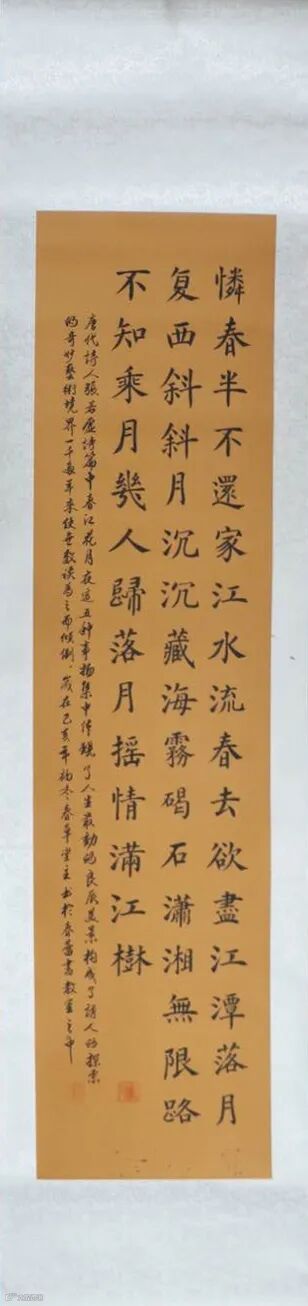 憐春半不還家江水流春去欲盡江潭落月
复西斜斜月沉沉藏海霧碣石瀟湘無限路
不知乘月幾人歸落月摇情滿江樹
唐代詩人張若虛詩篇中春江花月夜這五种事物集中体現了人生最動的良辰美景构成了詩人的探索
的奇妙藝術境界一千多年來使無数读者之而傾倒歲在己亥年初冬春草堂主书於春蕾書教室之中